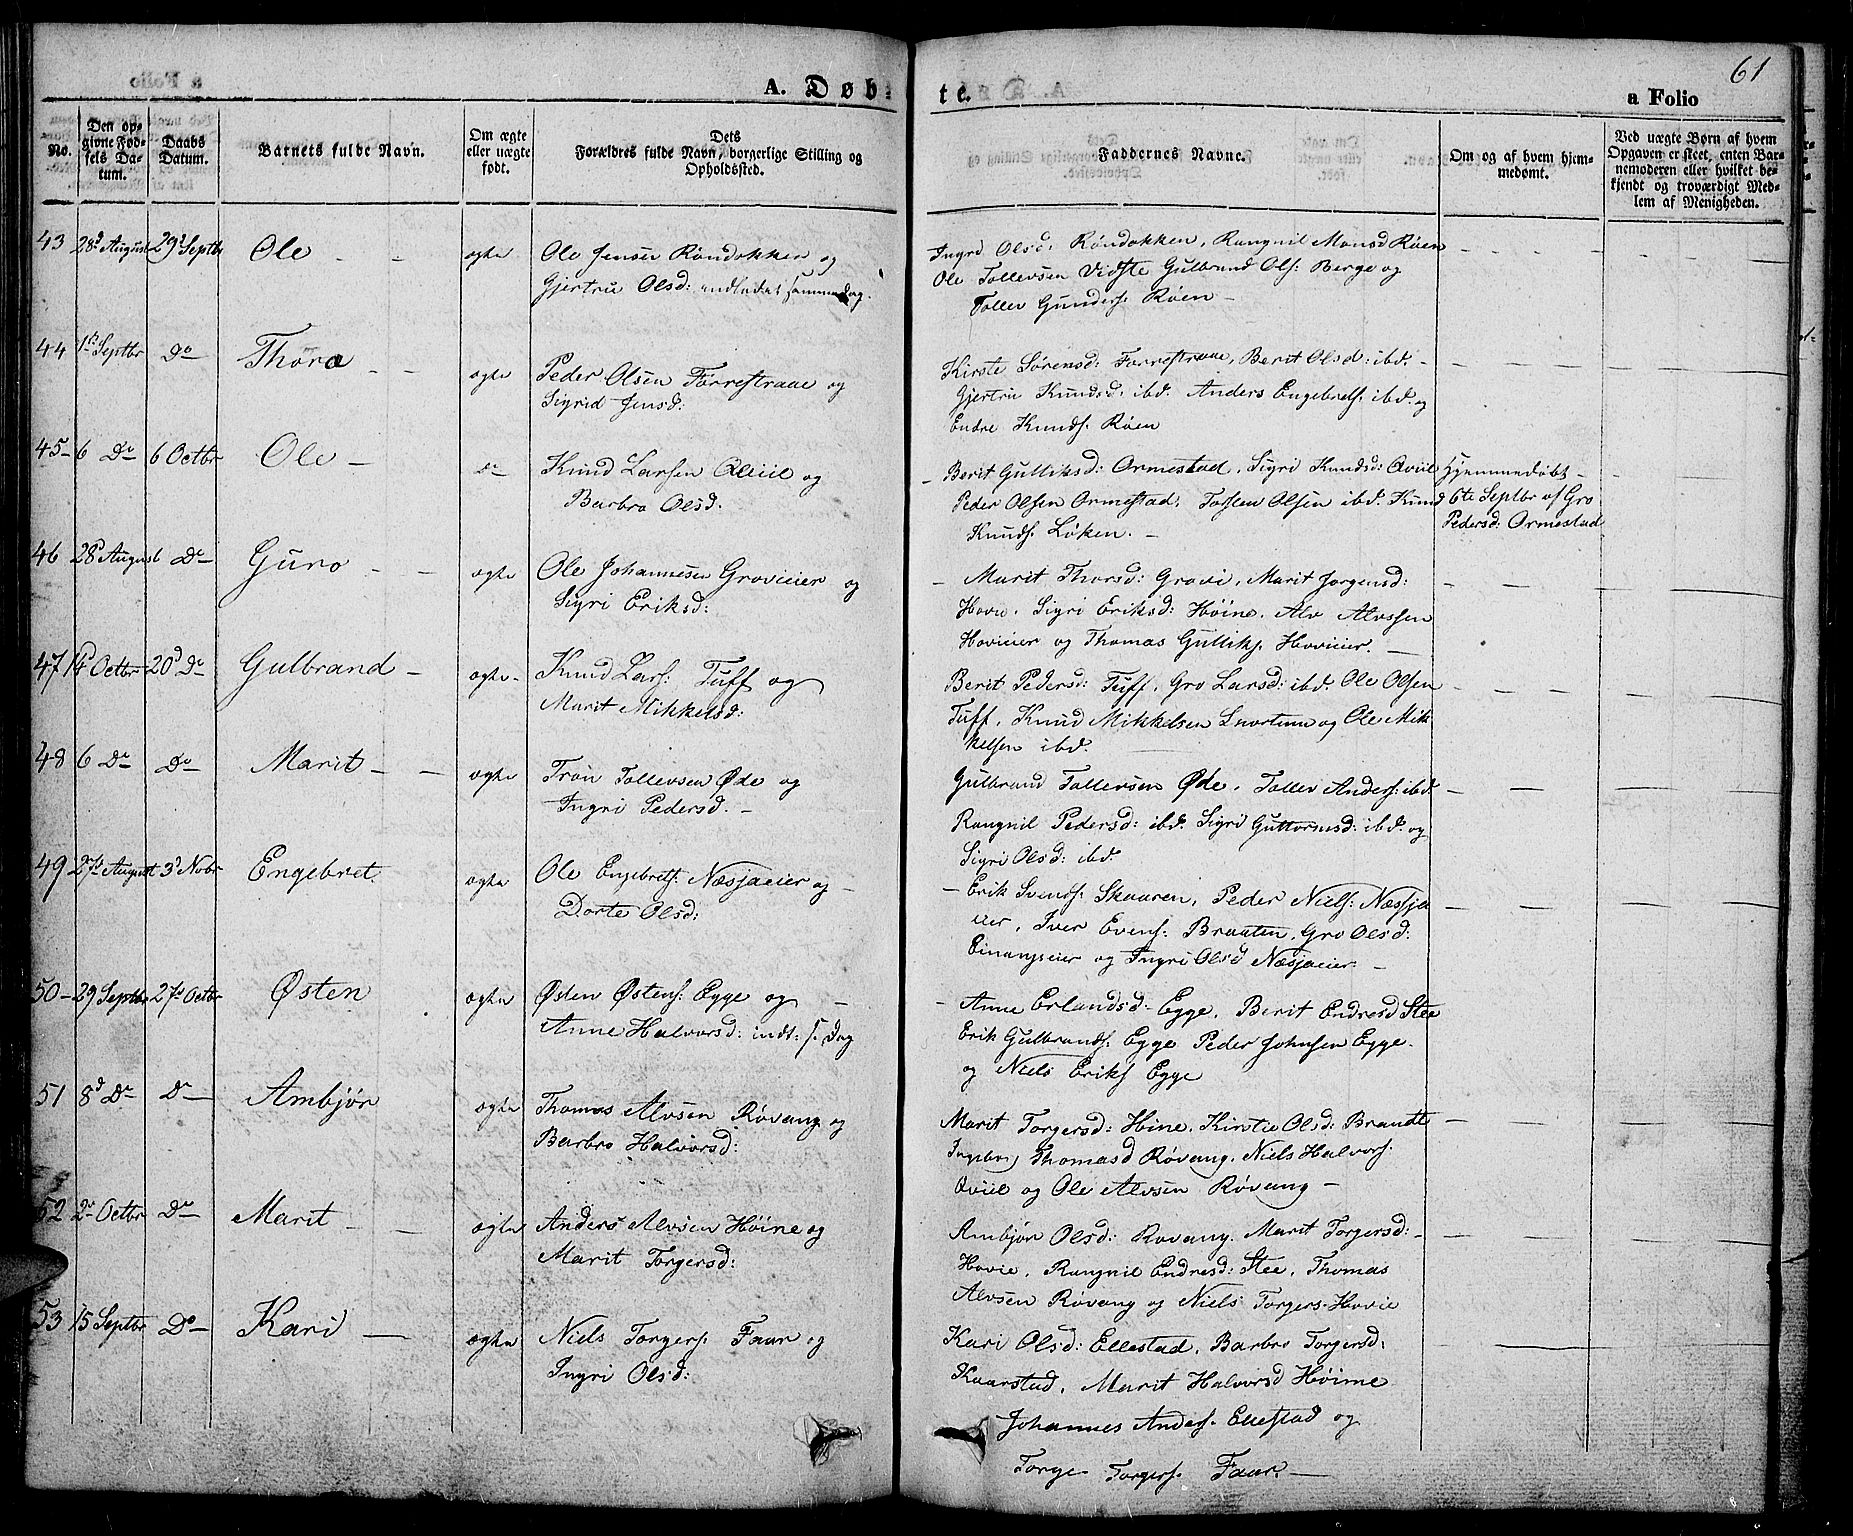 61
A. Døb-
te.
a Folio
No.
Den op-
givne Fød-
sels Da-
tum.
Daabs
Datum.
Barnets fulde Navn.
Om ægte
eller uægte
født.
Dets
Forældres fulde Navn, borgerlige Stilling og
Opholdssted.
Faddernes Navne.
Om og af hvem hjem-
medømt.
Ved uægte Børn af hvem
Opgaven er skeet, enten Bar-
nemoderen eller hvilket be-
kjendt og troværdigt Med-
lem af Menigheden.
43 28d August 29d Septbr Ole - - ægte
Ole Jensen Røndokken og
Gjertru Olsd: indledet samme Dag.
Ingri Olsd: Røndokken, Rangnil Monsd Røen
Ole Tollevsen Vidste Gulbrand Ols: Berge og
Tollev Gunders. Røen -
44 1ste Septbr Do Thora - - ægte
Peder Olsen Forrestraae og
Sigrid Jensd:
Kirste Sørensd: Forrestraae, Berit Olsd: ibd. -
Gjertru Knudsd: ibd. Anders Engebrets: ibd. og
Endre Knuds. Røen
45 - 6 Do 6 Octbr Ole - do
Knud Larsen Qviil og
Barbro Olsd.
Berit Gulliksd: Ormestad, Sigri Knudsd: Qviil
Peder Olsen Ormestad, Torsten Olsen ibd. Knud
Knuds. Løken. -
Hjemmedøbt -
6te Septbr af Gro
Pedersd: Ormestad
46 28d August Do Guro - - ægte
Ole Johannesen Grovieier og
Sigri Eriksd:
Marit Thorsd: Grovi, Marit Jorgensd:
Hovie, Sigri Eriksd: Høine, Alv Alvssen
Hovieier og Thomas Gulliks. Hovieier. -
47 14d Octbr 20d Do Gulbrand - ægte -
Knud Lars: Tuff og
Marit Mikkelsd:
Berit Pedersd: Tuff, Gro Larsd: ibd. Ole Olsen
Tuff, Knud Mikkelsen Snortum og Ole Mik-
kelsen ibd.
48 6 Do Do Marit - - ægte
Tron Tollevsen Øde og
Ingri Pedersd. -
Gulbrand Tollevsen Øde, Tollev Anders: ibd.
Rangnil Pedersd: ibd. Sigri Guttormsd: ibd. og
Sigri Olsd: ibd.
49 27de August 3d Nobr Engebret. ægte
Ole Engebrets: Næsjaeier og -
Dorte Olsd:
- Erik Svends: Skaaren, Peder Niels: Næsja
eier, Iver Evens: Braaten, Gro Olsd:
Einangseier og Ingri Olsd Næsjaeier. -
50 - 29 Septbr 27de Octbr Østen ægte
Østen Østens: Egge og -
Anne Halvorsd: indt: s. Dag
- Anne Erlandsd: Egge, Berit Endresd Stee
Erik Gulbrands. Egge Peder Johnsen Egge.
og Niels Eriks. Egge
51 8d Do Do Ambjør ægte
Thomas Alvsen Røvang og
Barbro Halvorsd:
Marit Torgersd: Høine, Kirstie Olsd: Brandt
Ingebor Thomasd Røvang, Niels Halvors.
Qviil og Ole Alvsen Røvang -
52 2de Octbr Do Marit - - ægte
Anders Alvsen Høine og
Marit Torgersd:
Ambjør Olsd: Røvang, Marit Torgersd: -
Hovie, Rangnil Endresd: Stee, Thomas
Alvsen Røvang og Niels Torgers. Hovie
53 15 Septbr Do Kari - ægte
Niels Torgers. Faur og
Ingri Olsd:
Kari Olsd: Ellestad, Barbro Torgersd:
Kaarstad, Marit Halvorsd Høime
Johannes Anders. Ellestad og
Torge Torgers. Faur. -